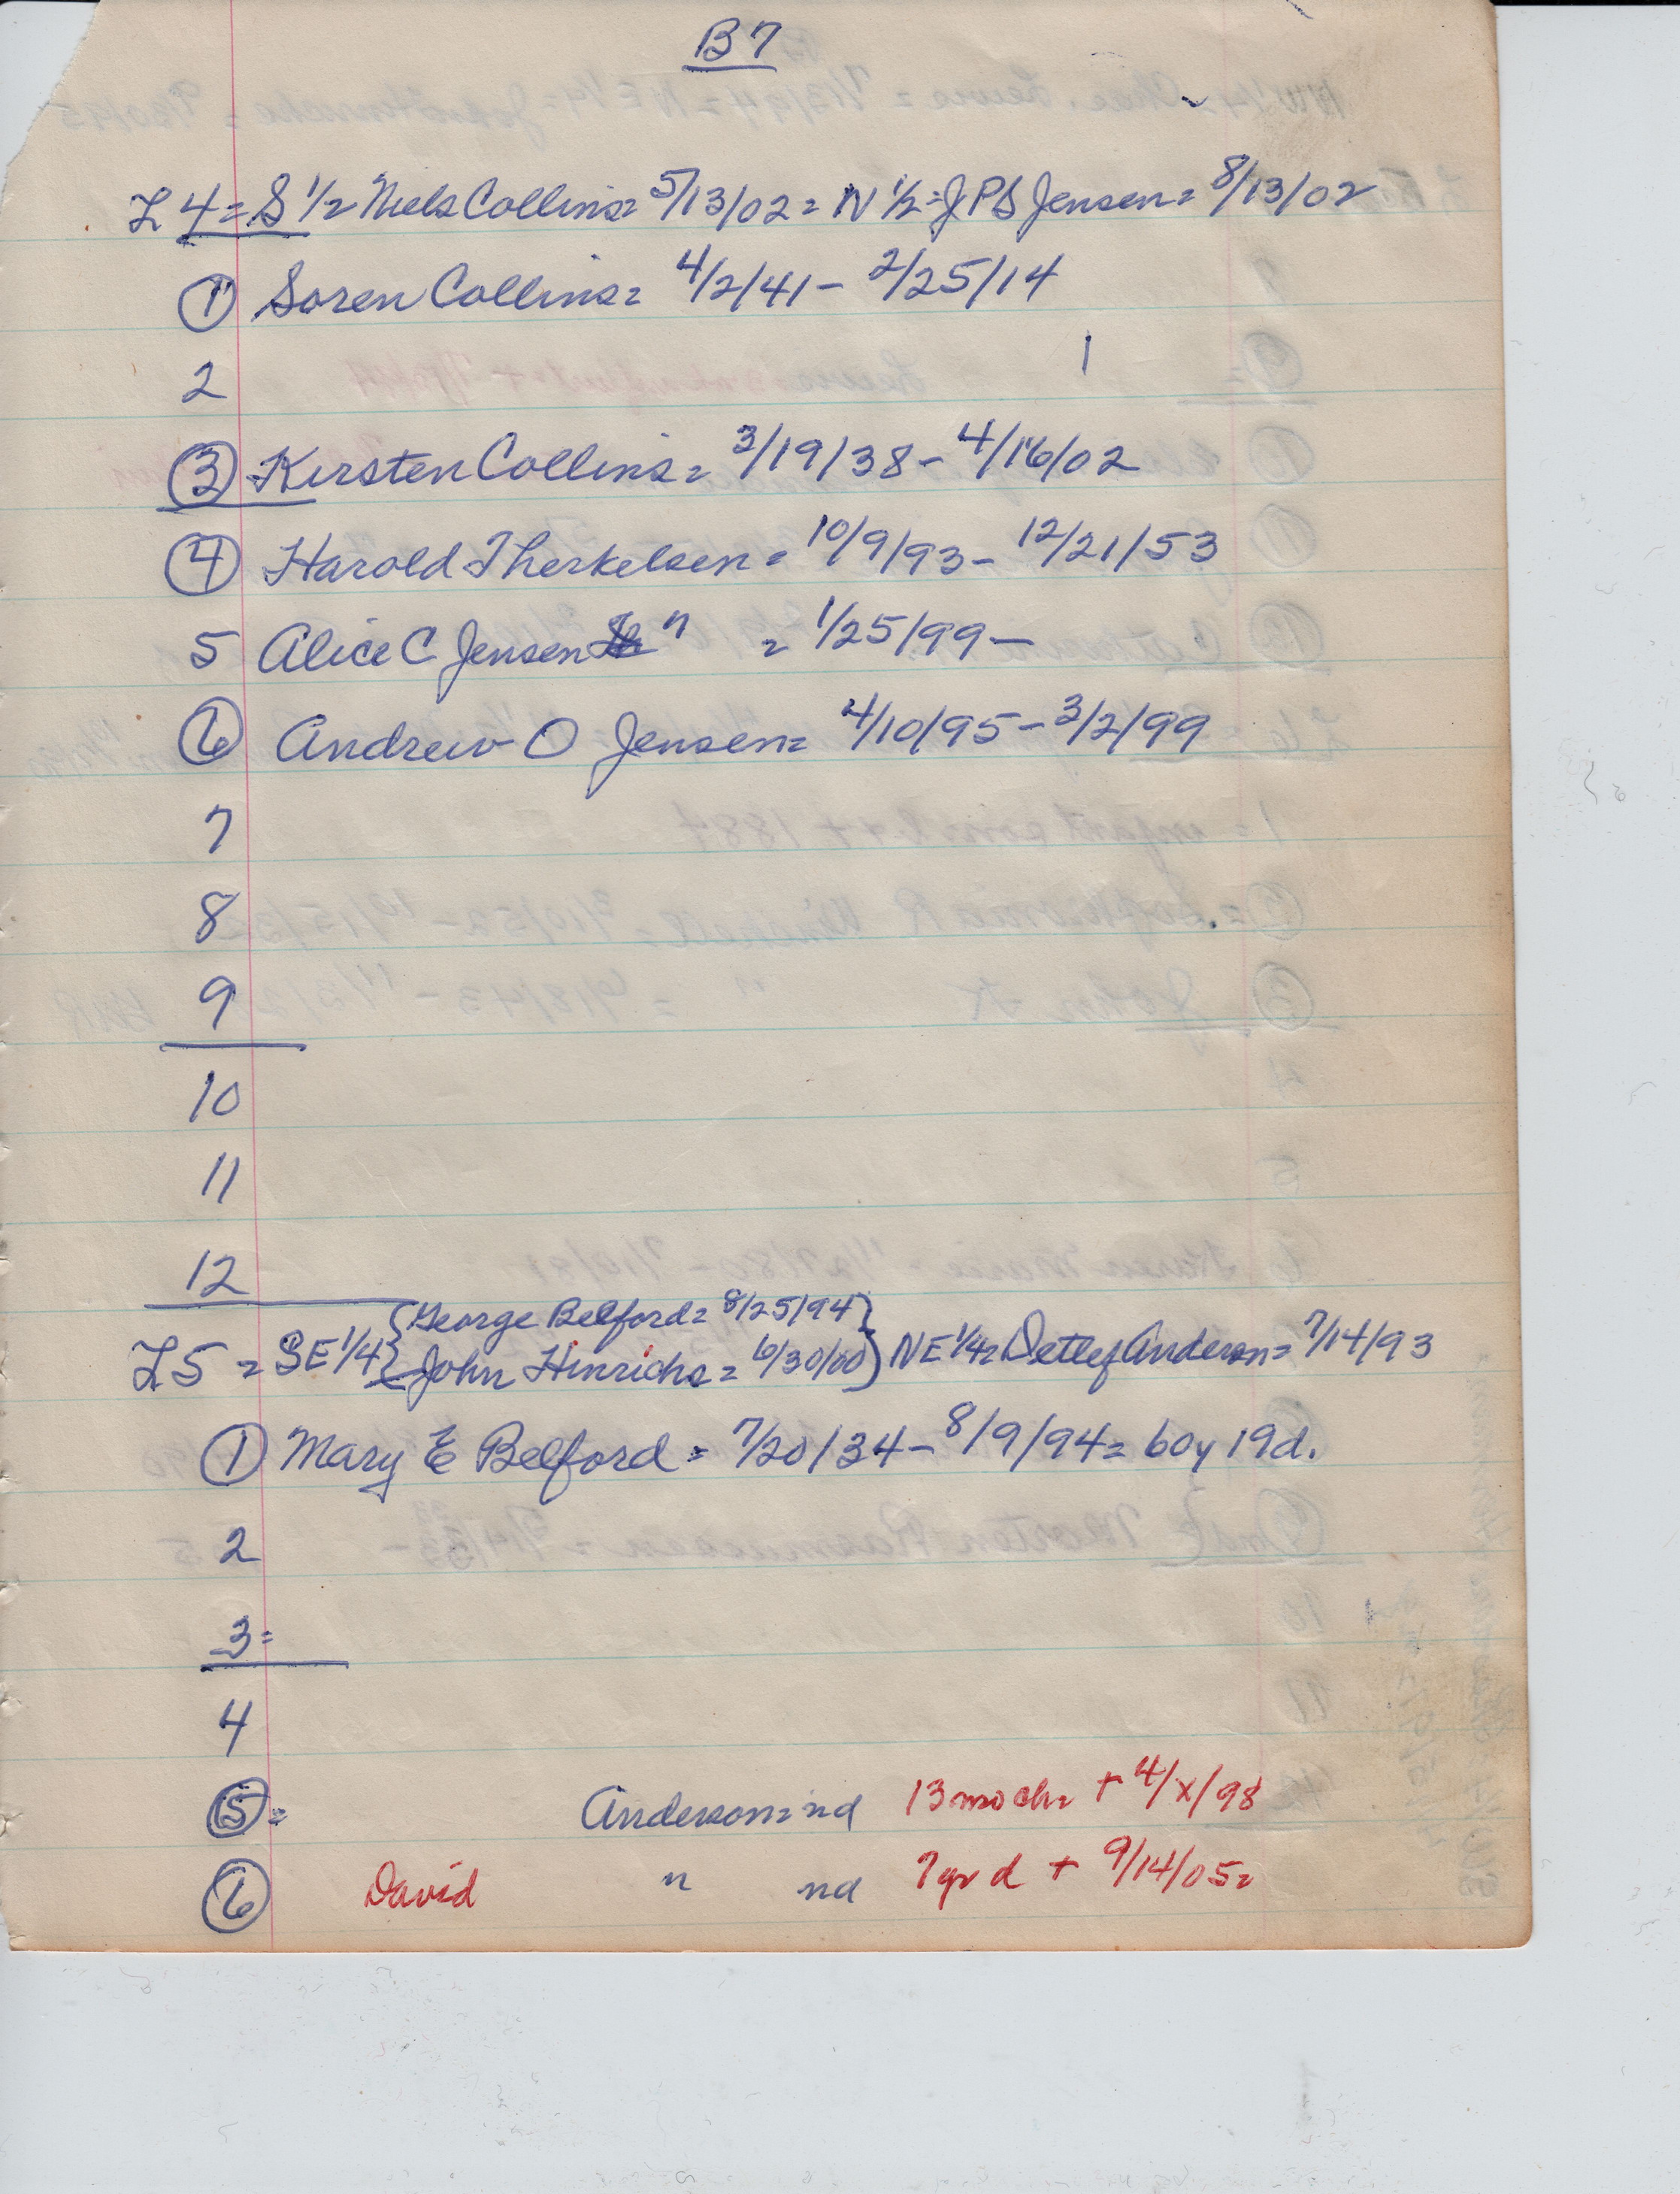 B7
L 4 = S 1/2 Niels Collins = 5/13/02 = N 1/2 = J P S Jensen = 8/13/02
1 Soren Collins = 4/2/41 - 2/25/14
2
3 Kirsten Collins = 3/19/38 - 4/16/02
4 Harold Therkelsen = 10/9/93 - 12/21/53
5 Alice C Jensen " = 1/25/99 -
6 Andrew O Jensen = 4/10/95 - 3/2/99
7
8
9
10
11
12
L 5 = SE 1/4 { George Belford = 8/25/94 }
{ John Hinrichs = 6/30/00 } NE 1/4 = Detlef Anderson = 7/14/93
1 Mary E Belford = 7/20/34 - 8/9/94 = 60y 19d.
2
3 =
4
5 = Anderson = nd 13 mo ch = + 4/x/98
6 David " nd 7 yr d + 9/14/05 =